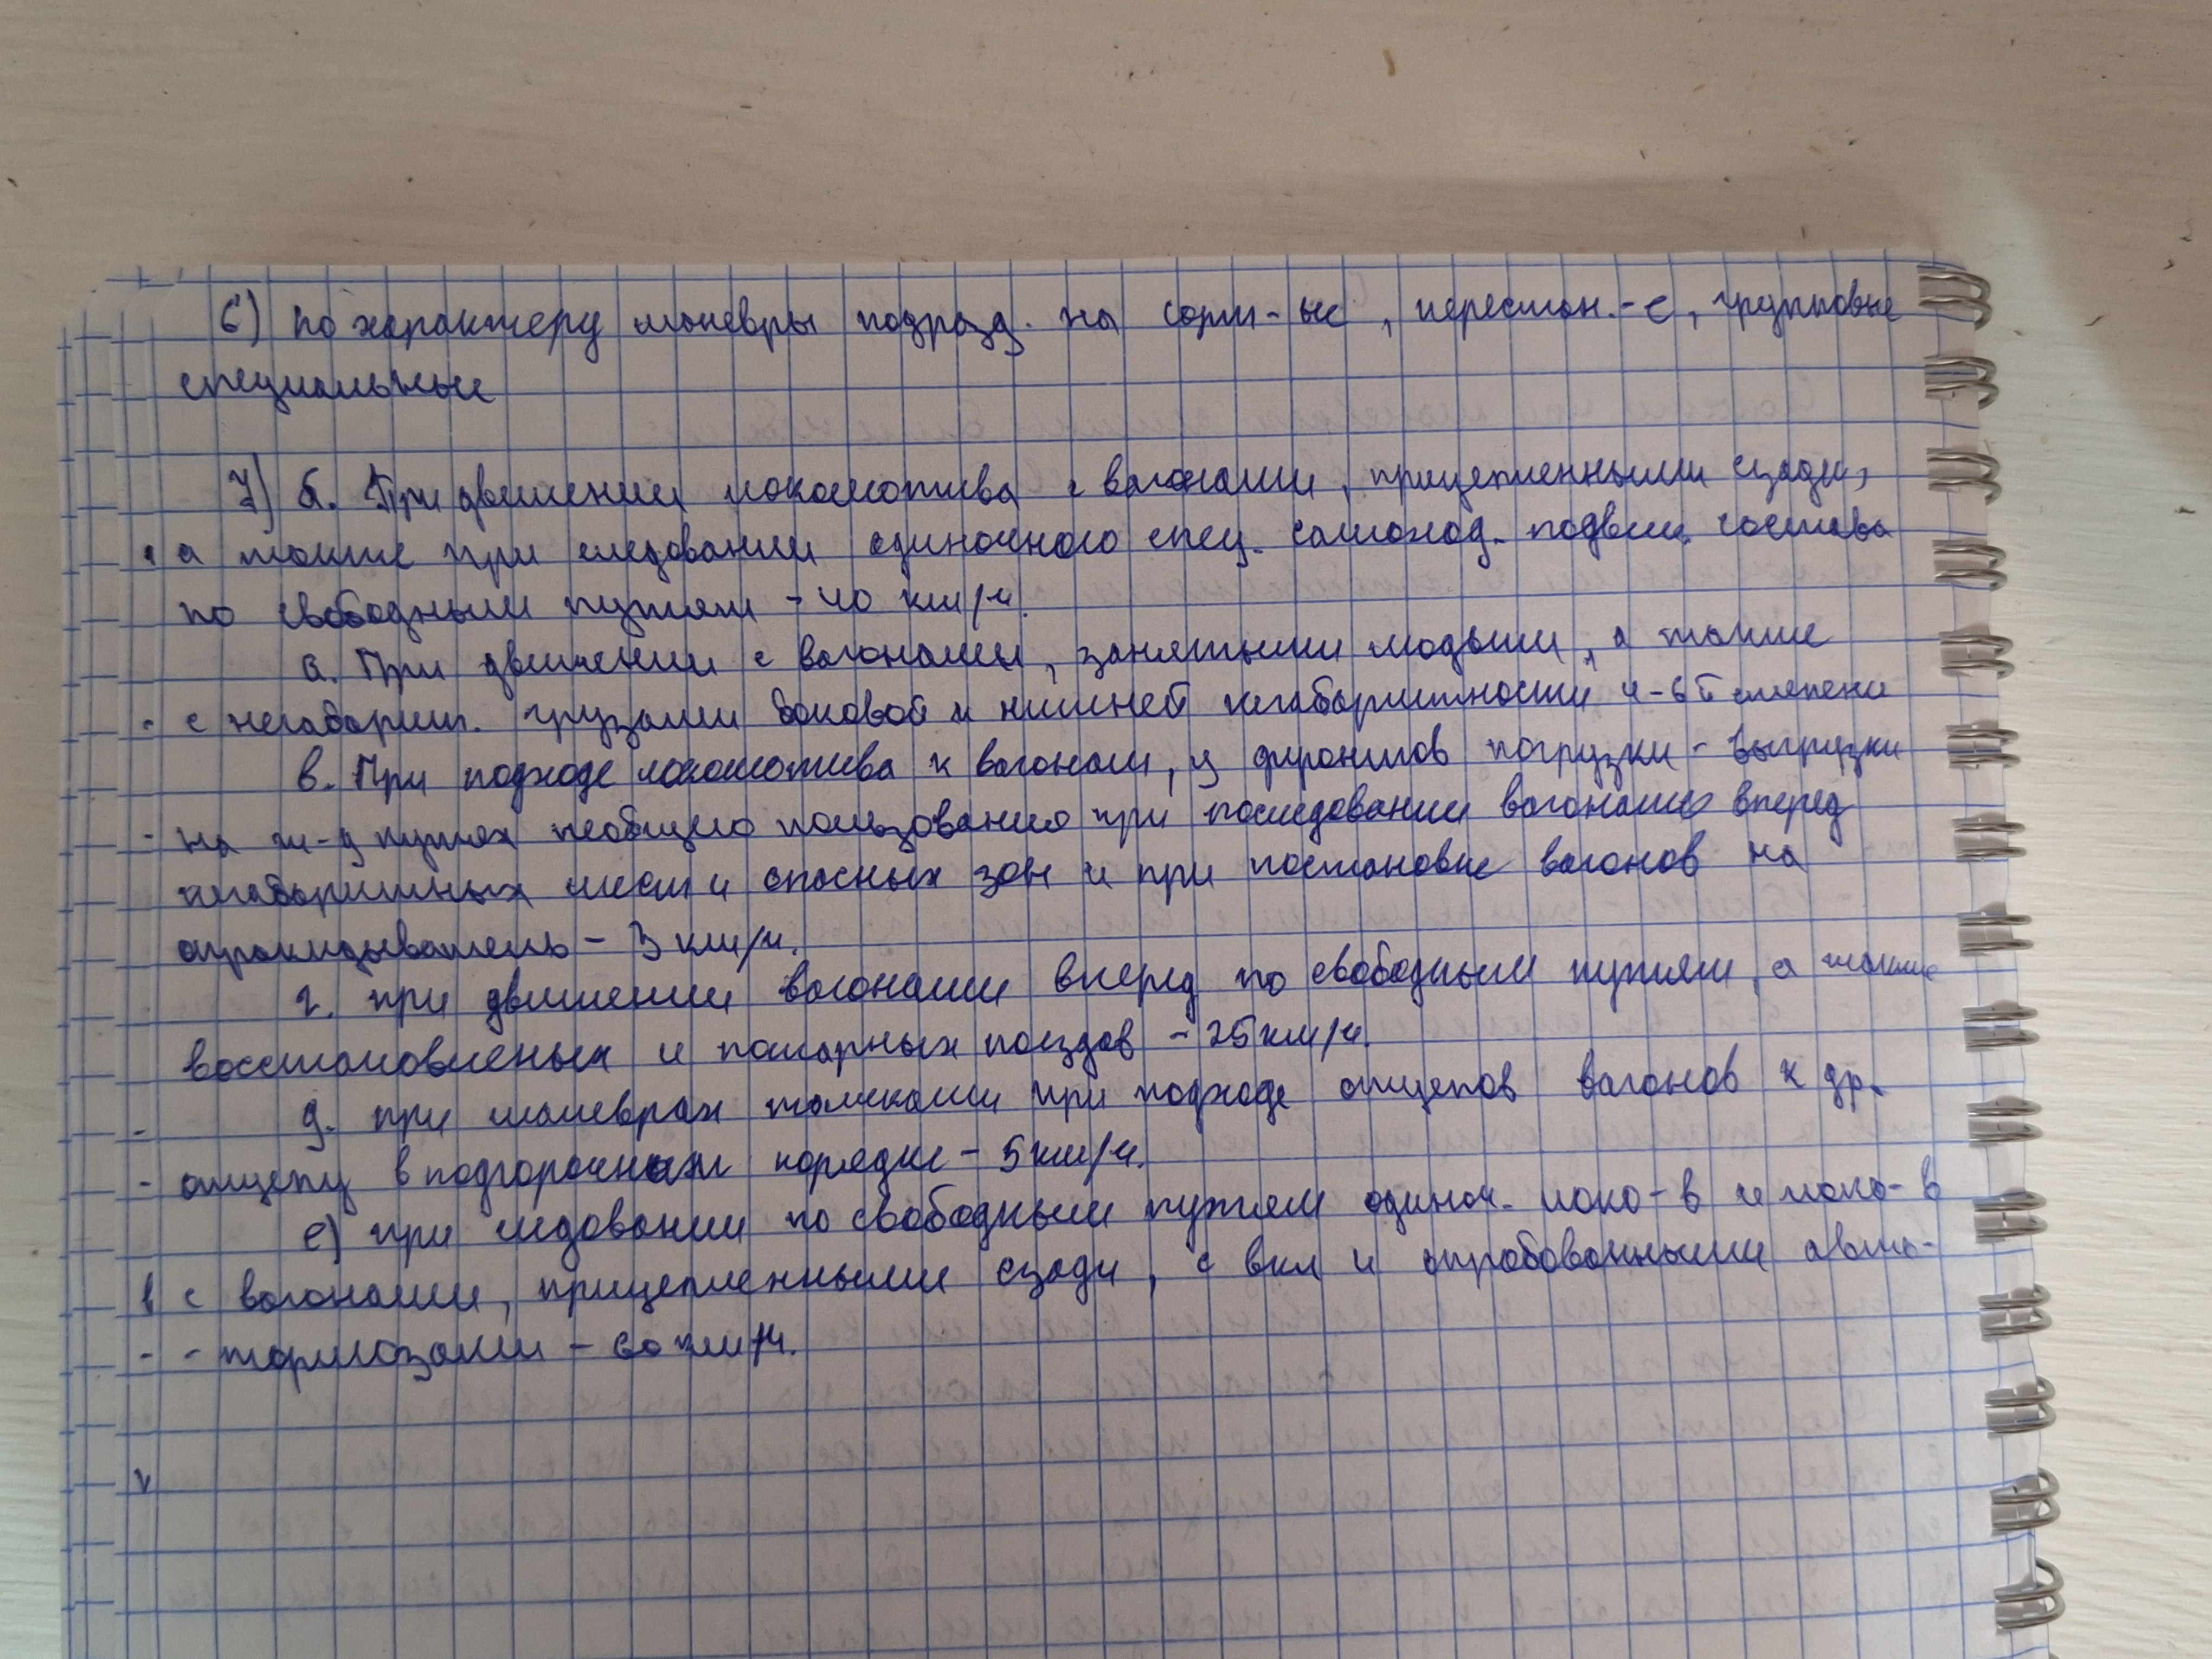 6) по характеру маневры подразд. на сорт-ые, перестан.-е, групповые
специальные
7) б. При движении локомотива с вагонами, прицепленными сзади,
а также при следовании одиночного спец. самоход. подвиж. состава
по свободным путям - 40 км/ч.
а. При движении с вагонами, занятыми людьми, а также
- с негабарит. грузами боковой и нижней негабаритности 4-6й степени
в. При подходе локомотива к вагонам, у фронтов погрузки - выгрузки
- на ж-д путях необщего пользования при последовании вагонами вперед
негабаритных мест и опасных зон и при постановке вагонов на
опрокидыватель - 3 км/ч.
г. при движении вагонами вперед по свободным путям, а также
восстановленых и пожарных поездов - 25 км/ч.
- д. при маневрах толчками при подходе отцепов вагонов к др.
- отцепу в подгорочных порядке - 5 км/ч.
е) при следовании по свободным путям одиноч. локо-в и локо-в
с вагонами, прицепленными сзади, с вкл и опробованными авто-
- - тормозами - 60 км/ч.